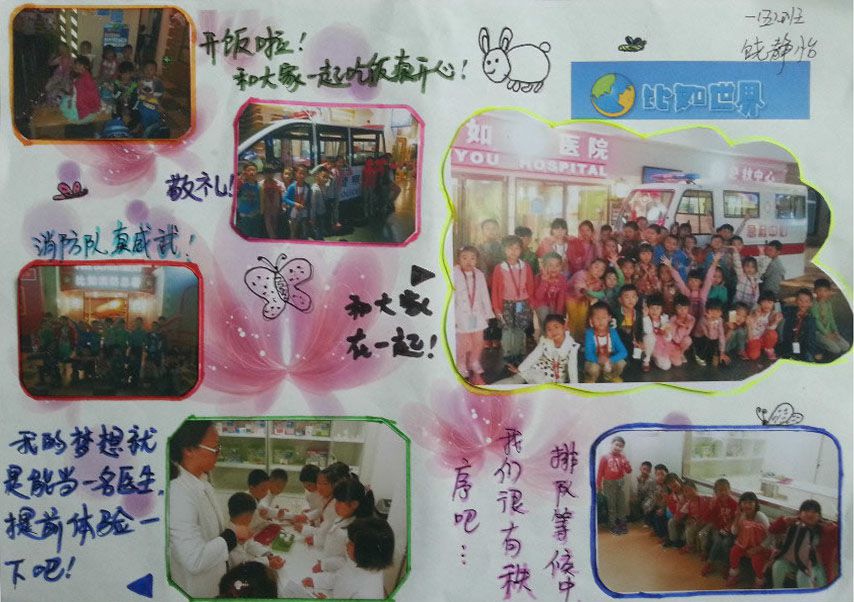 开饭啦！
和大家一起吃饭真开心！
一（五）班
饶静怡
比如世界
敬礼！
如 医院
YOU HOSPITAL
急救中心
急救中心
消防队真威武！
和大家
在一起！
我的梦想就
是能当一名医生，
提前体验一
下吧！
排队等候中
我们很有秩
序吧…